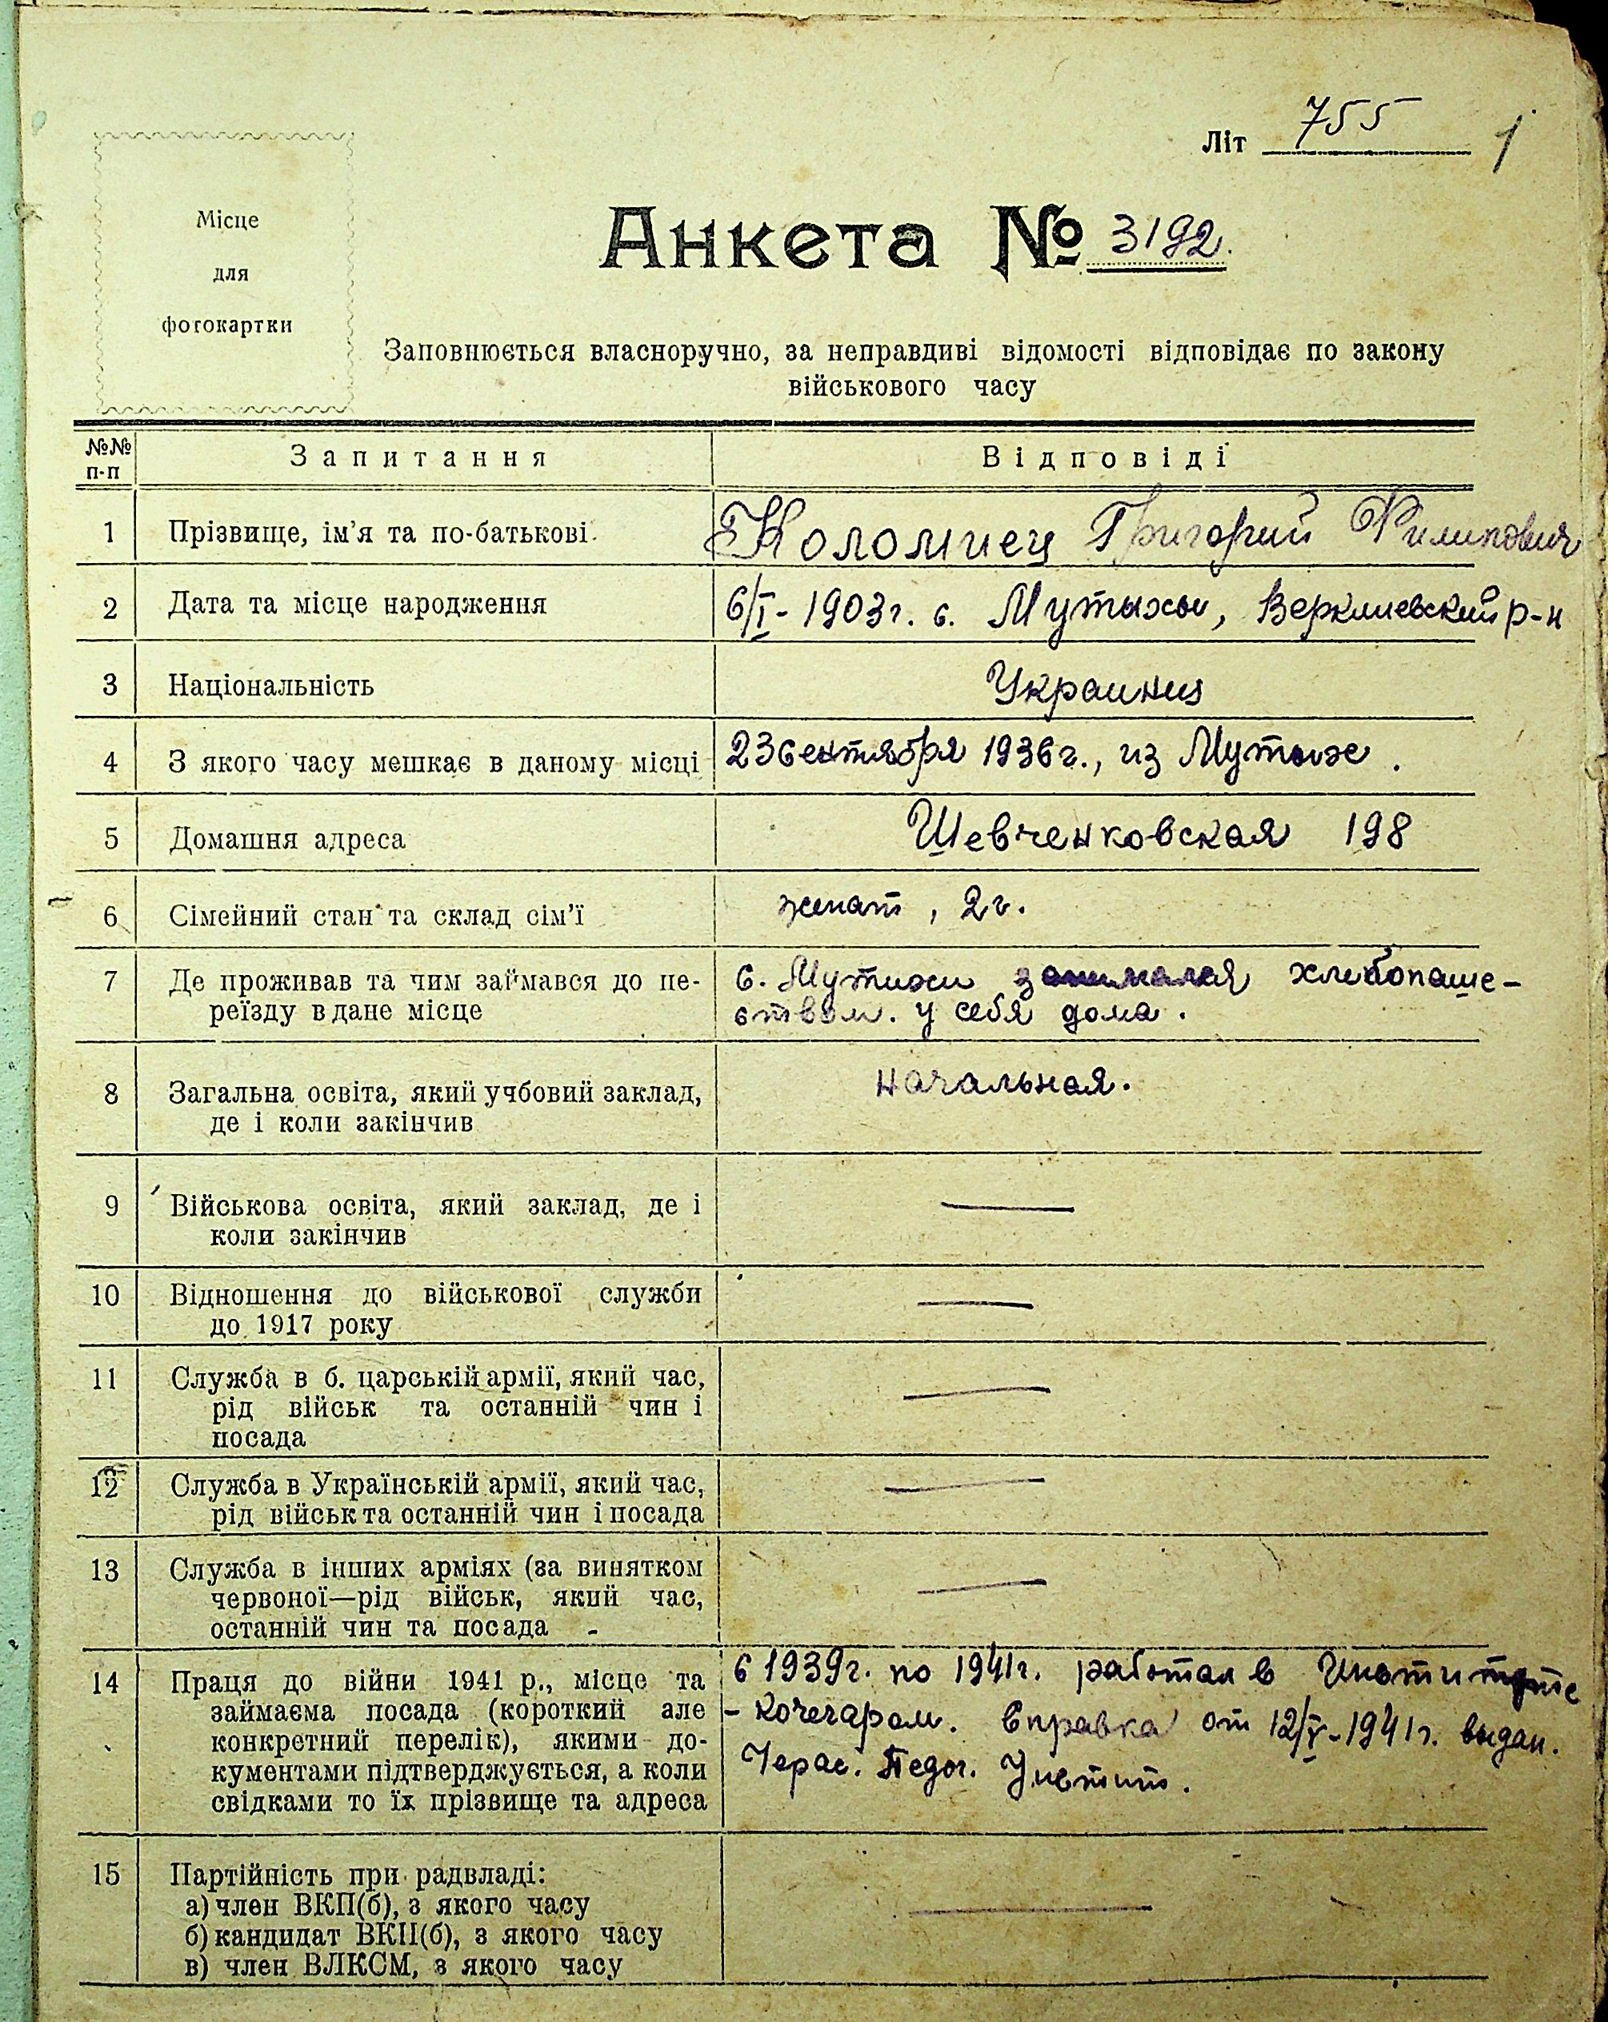 Літ 755 1
Місце
для
фотокартки
Анкета № 3192.
Заповнюється власноручно, за неправдиві відомості відповідає по закону
військового часу
№№ п-п Запитання Відповіді
1 Прізвище, ім'я та по-батькові. Коломиец Григорий Филипович
2 Дата та місце народження 6/I - 1903г. с. Мутыхи, Верклиевский р-н
3 Національність Украинец
4 З якого часу мешкає в даному місці 23 сентября 1936 г., из Мутыхе.
5 Домашня адреса Шевченковская 198
6 Сімейний стан та склад сім'ї женат, 2 г.
7 Де проживав та чим займався до пе- с. Мутихи занимался хлебопаше-
реїзду в дане місце ством. у себя дома.
8 Загальна освіта, який учбовий заклад, начальная.
де і коли закінчив
9 Військова освіта, який заклад, де і —
коли закінчив
10 Відношення до військової служби —
до 1917 року
11 Служба в б. царській армії, який час, —
рід військ та останній чин і
посада
12 Служба в Українській армії, який час, —
рід військ та останній чин і посада
13 Служба в інших арміях (за винятком —
червоної—рід військ, який час,
останній чин та посада -
14 Праця до війни 1941 р., місце та с 1939г. по 1941г. работал в Институте
займаєма посада (короткий але - кочегаром. Справка от 12/V-1941г. выдан.
конкретний перелік), якими до-
кументами підтверджується, а коли Черас. Педог. Инстит.
свідками то їх прізвище та адреса
15 Партійність при радвладі: —
а) член ВКП(б), з якого часу
б) кандидат ВКП(б), з якого часу
в) член ВЛКСМ, з якого часу